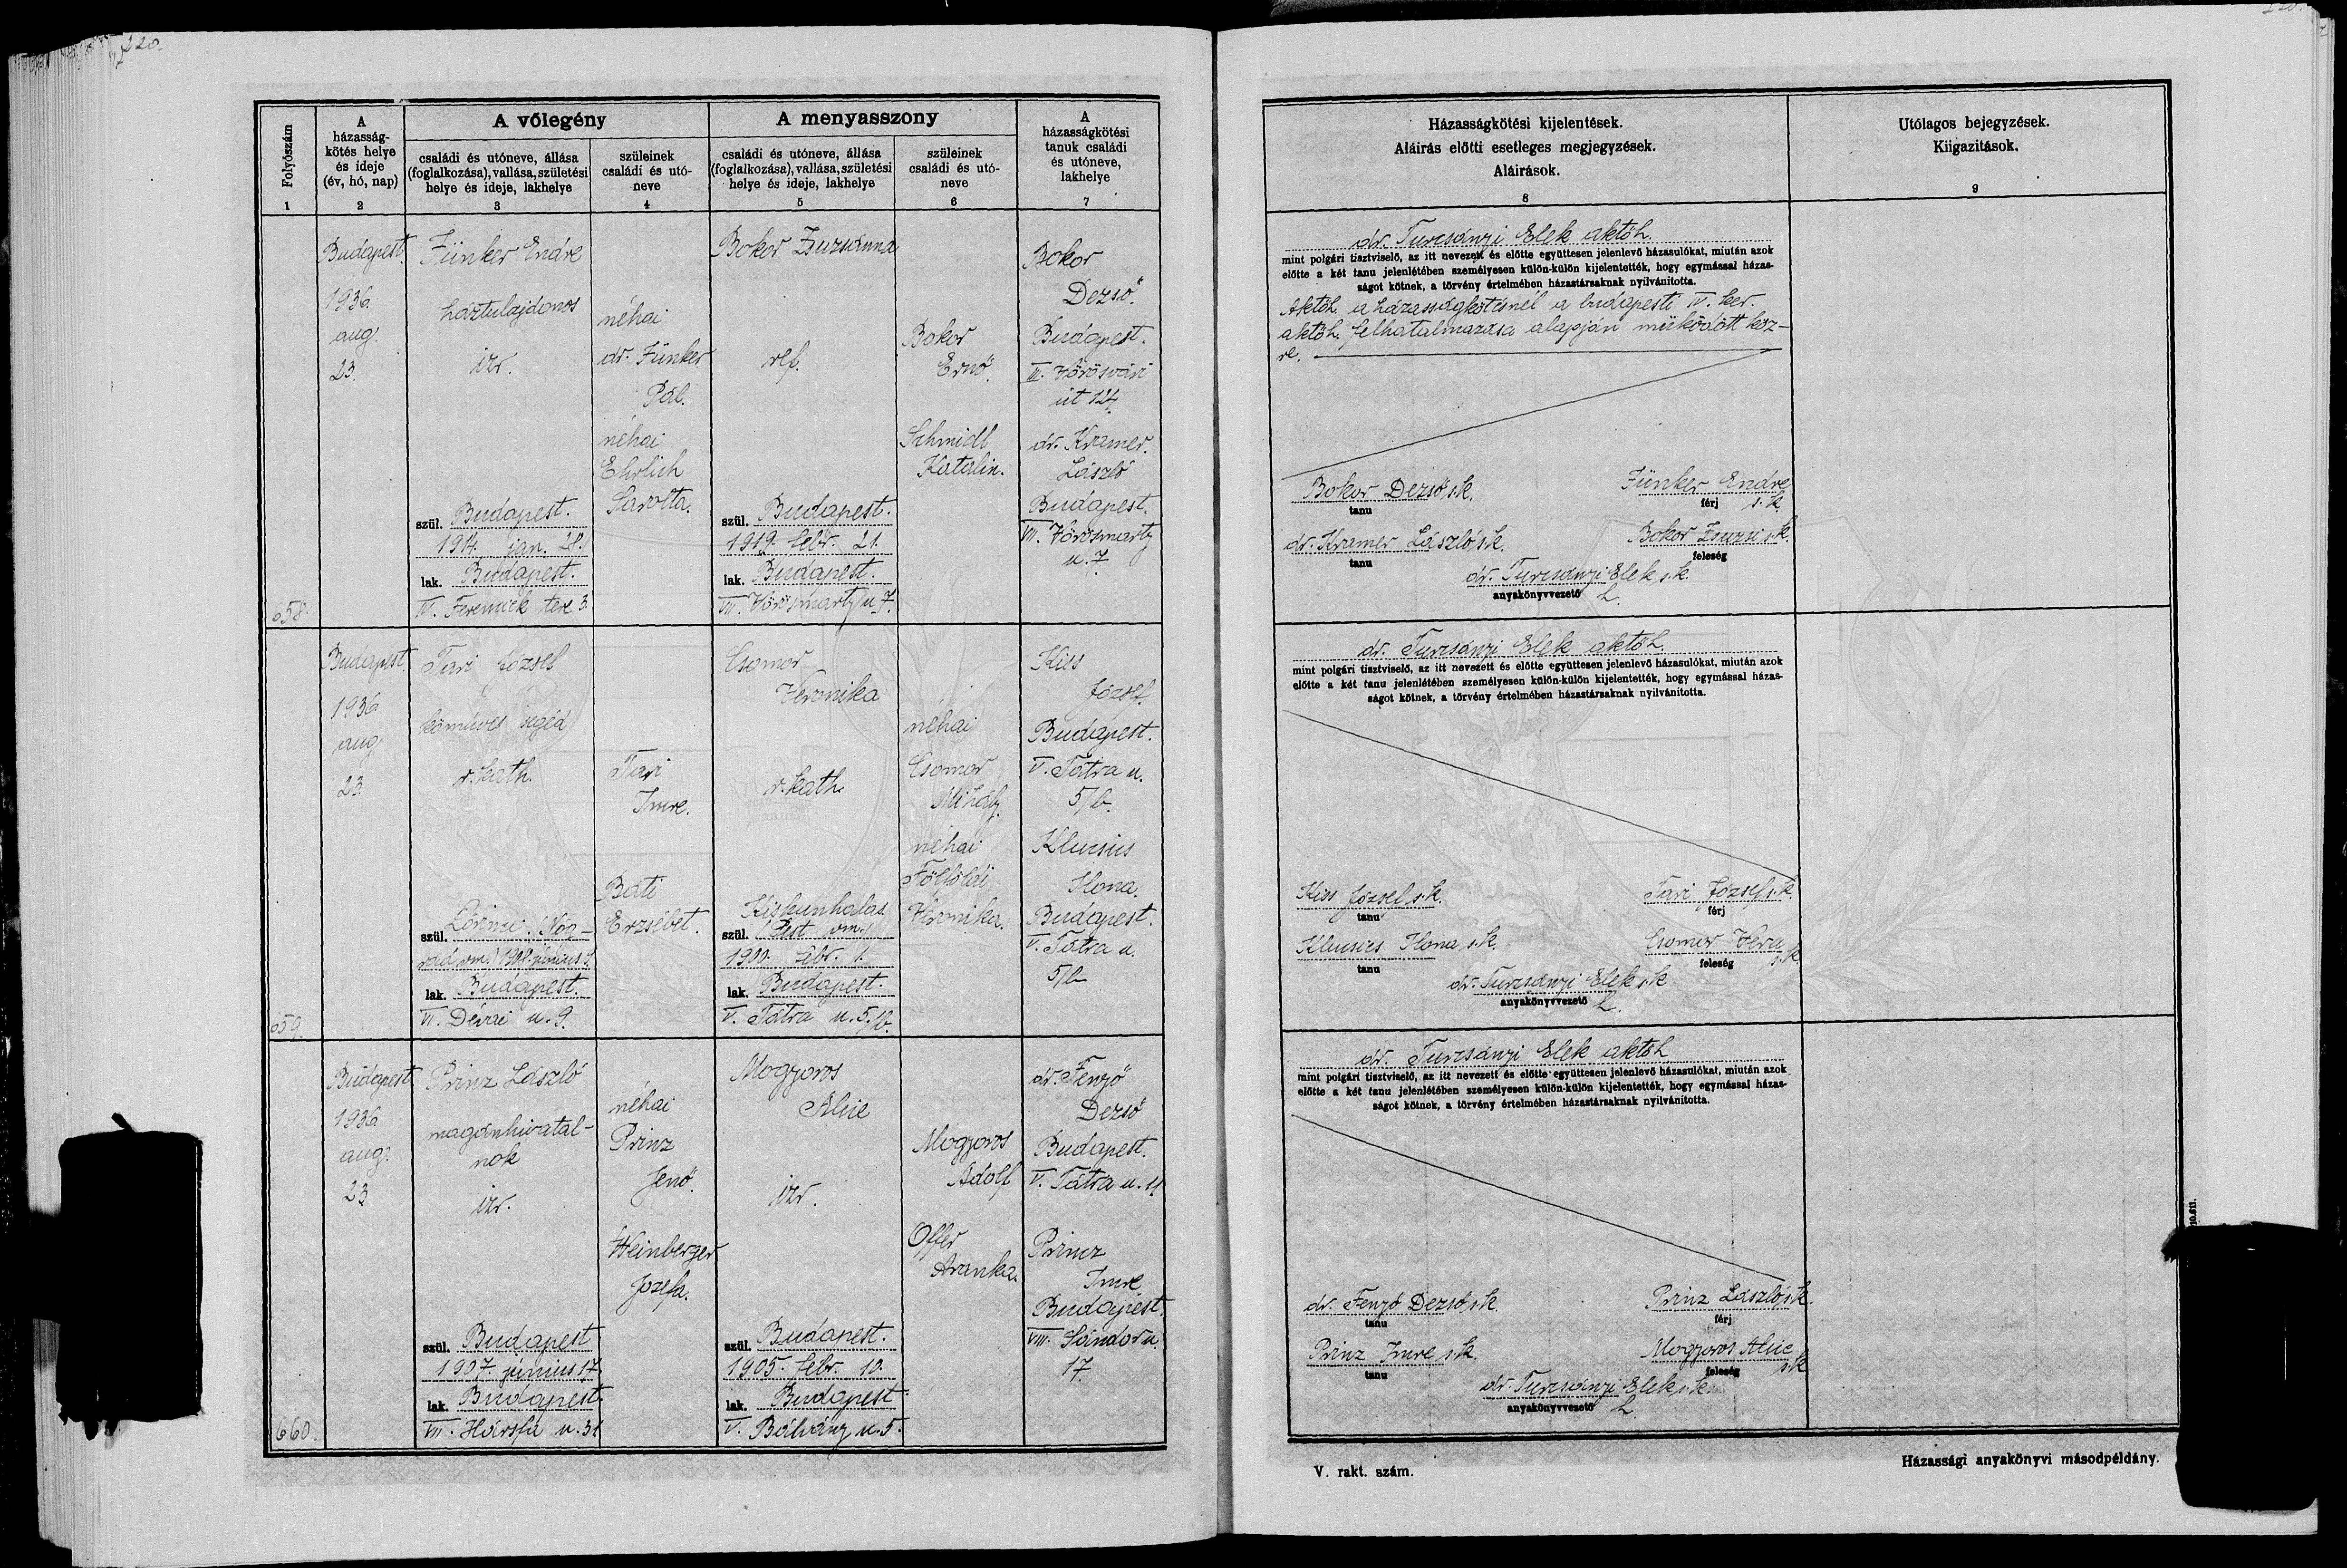 220.
Folyószám
A
házasság-
kötés helye
és ideje
(év, hó, nap)
A vőlegény
családi és utóneve, állása
(foglalkozása), vallása, születési
helye és ideje, lakhelye
szüleinek
családi és utó-
neve
A menyasszony
családi és utóneve, állása
(foglalkozása), vallása, születési
helye és ideje, lakhelye
szüleinek
családi és utó-
neve
A
házasságkötési
tanuk családi
és utóneve,
lakhelye
1
2
3
4
5
6
7
658.
Budapest.
1936
aug.
23.
Fünker Endre
háztulajdonos
izr.
szül. Budapest.
1914. jan. 28.
lak. Budapest.
IV. Ferenciek tere 3.
néhai
dr. Fünker
Pál.
néhai
Ehrlich
Sarolta.
Bokor Zsuzsánna
ref.
szül. Budapest.
1919. febr. 21.
lak. Budapest.
VII. Vörösmarty u. 7.
Bokor
Ernő.
Schmidl
Katalin.
Bokor
Dezső.
Budapest.
III. Vörösvári
út 124.
dr. Kramer
László
Budapest.
VII. Vörösmarty
u. 7.
659.
Budapest.
1936
aug
23.
Tari József
kőműves segéd
r. kath.
szül. Lőrinci. (Nóg-
rád vm.) 1901. június 1.
lak. Budapest.
VI. Dévai u. 9.
Tari
Imre.
Báti
Erzsébet.
Csomor
Veronika
r. kath.
Kiskunhalas
szül. (Pest vm.)
1900. febr. 1.
lak. Budapest.
V. Tátra u. 5/b.
néhai
Csomor
Mihály.
néhai
Fölföldi
Veronika.
Kiss
József.
Budapest.
V. Tátra u.
5/b.
Klucsics
Ilona.
Budapest.
V. Tátra u.
5/b
660.
Budapest
1936
aug.
23
Prinz László
magánhivatal-
nok
izr.
szül. Budapest
1907. június 17.
lak. Budapest.
VII. Hársfa u. 31
néhai
Prinz
Jenő.
Weinberger
Jozefa.
Mogyoros
Alice
izr.
szül. Budapest.
1905. febr. 10.
lak. Budapest
V. Bálvány u. 5.
Mogyoros
Adolf
Offer
Aranka.
dr. Fenyő
Dezső
Budapest.
V. Tátra u. 11.
Prinz
Imre
Budapest.
VIII. Sándor u.
17.
Házasságkötési kijelentések.
Aláirás előtti esetleges megjegyzések.
Aláirások.
8
Utólagos bejegyzések.
Kiigazitások.
9
dr. Turcsányi Elek aktöh.
mint polgári tisztviselő, az itt nevezett és előtte együttesen jelenlevő házasulókat, miután azok
előtte a két tanu jelenlétében személyesen külön-külön kijelentették, hogy egymással házas-
ságot kötnek, a törvény értelmében házastársaknak nyilvánitotta.
Aktöh. a házasságkötésnél a budapesti IV. ker.
aktöh. felhatalmazása alapján működött köz-
re.
Bokor Dezső s.k.
tanu
Fünker Endre
férj s.k.
dr. Kramer László s.k.
tanu
Bokor Zsuzsi s.k.
feleség
dr. Turcsányi Elek s.k.
anyakönyvvezető h.
dr. Turcsányi Elek aktöh.
mint polgári tisztviselő, az itt nevezett és előtte együttesen jelenlevő házasulókat, miután azok
előtte a két tanu jelenlétében személyesen külön-külön kijelentették, hogy egymással házas-
ságot kötnek, a törvény értelmében házastársaknak nyilvánitotta.
Kiss József s.k.
tanu
Tari József s.k.
férj
Klucsics Ilona s.k.
tanu
Csomor Vera
feleség s.k.
dr. Turcsányi Elek s.k
anyakönyvvezető h.
dr. Turcsányi Elek aktöh
mint polgári tisztviselő, az itt nevezett és előtte együttesen jelenlevő házasulókat, miután azok
előtte a két tanu jelenlétében személyesen külön-külön kijelentették, hogy egymással házas-
ságot kötnek, a törvény értelmében házastársaknak nyilvánitotta.
dr. Fenyő Dezső s.k.
tanu
Prinz László s.k.
férj
Prinz Imre s.k.
tanu
Mogyoros Alice
feleség s.k
dr. Turcsányi Elek s.k.
anyakönyvvezető h.
V. rakt. szám.
Házassági anyakönyvi másodpéldány.